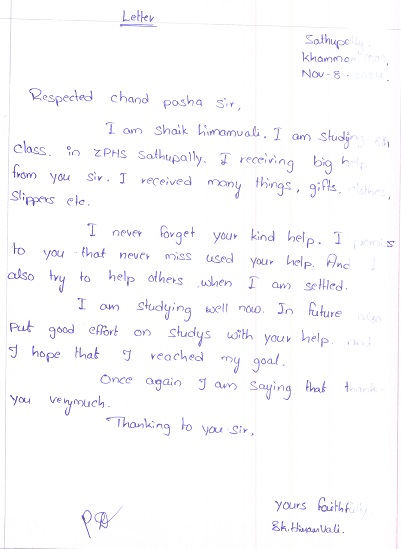 Letter
Sathupally
Khammam
Nov-8-
Respected chand pasha sir,
I am shaik himamvali. I am studying
class. in ZPHS Sathupally. I receiving big help
from you sir. I received many things, gifts, clothes,
slippers etc.
I never forget your kind help. I promis
to you that never miss used your help. And I
also try to help others when I am settled.
I am studying well now. In future
put good effort on studys with your help. and
I hope that I reached my goal.
Once again I am saying that thank
you verymuch.
Thanking to you sir.
yours faithfully
Sk.HimamVali.